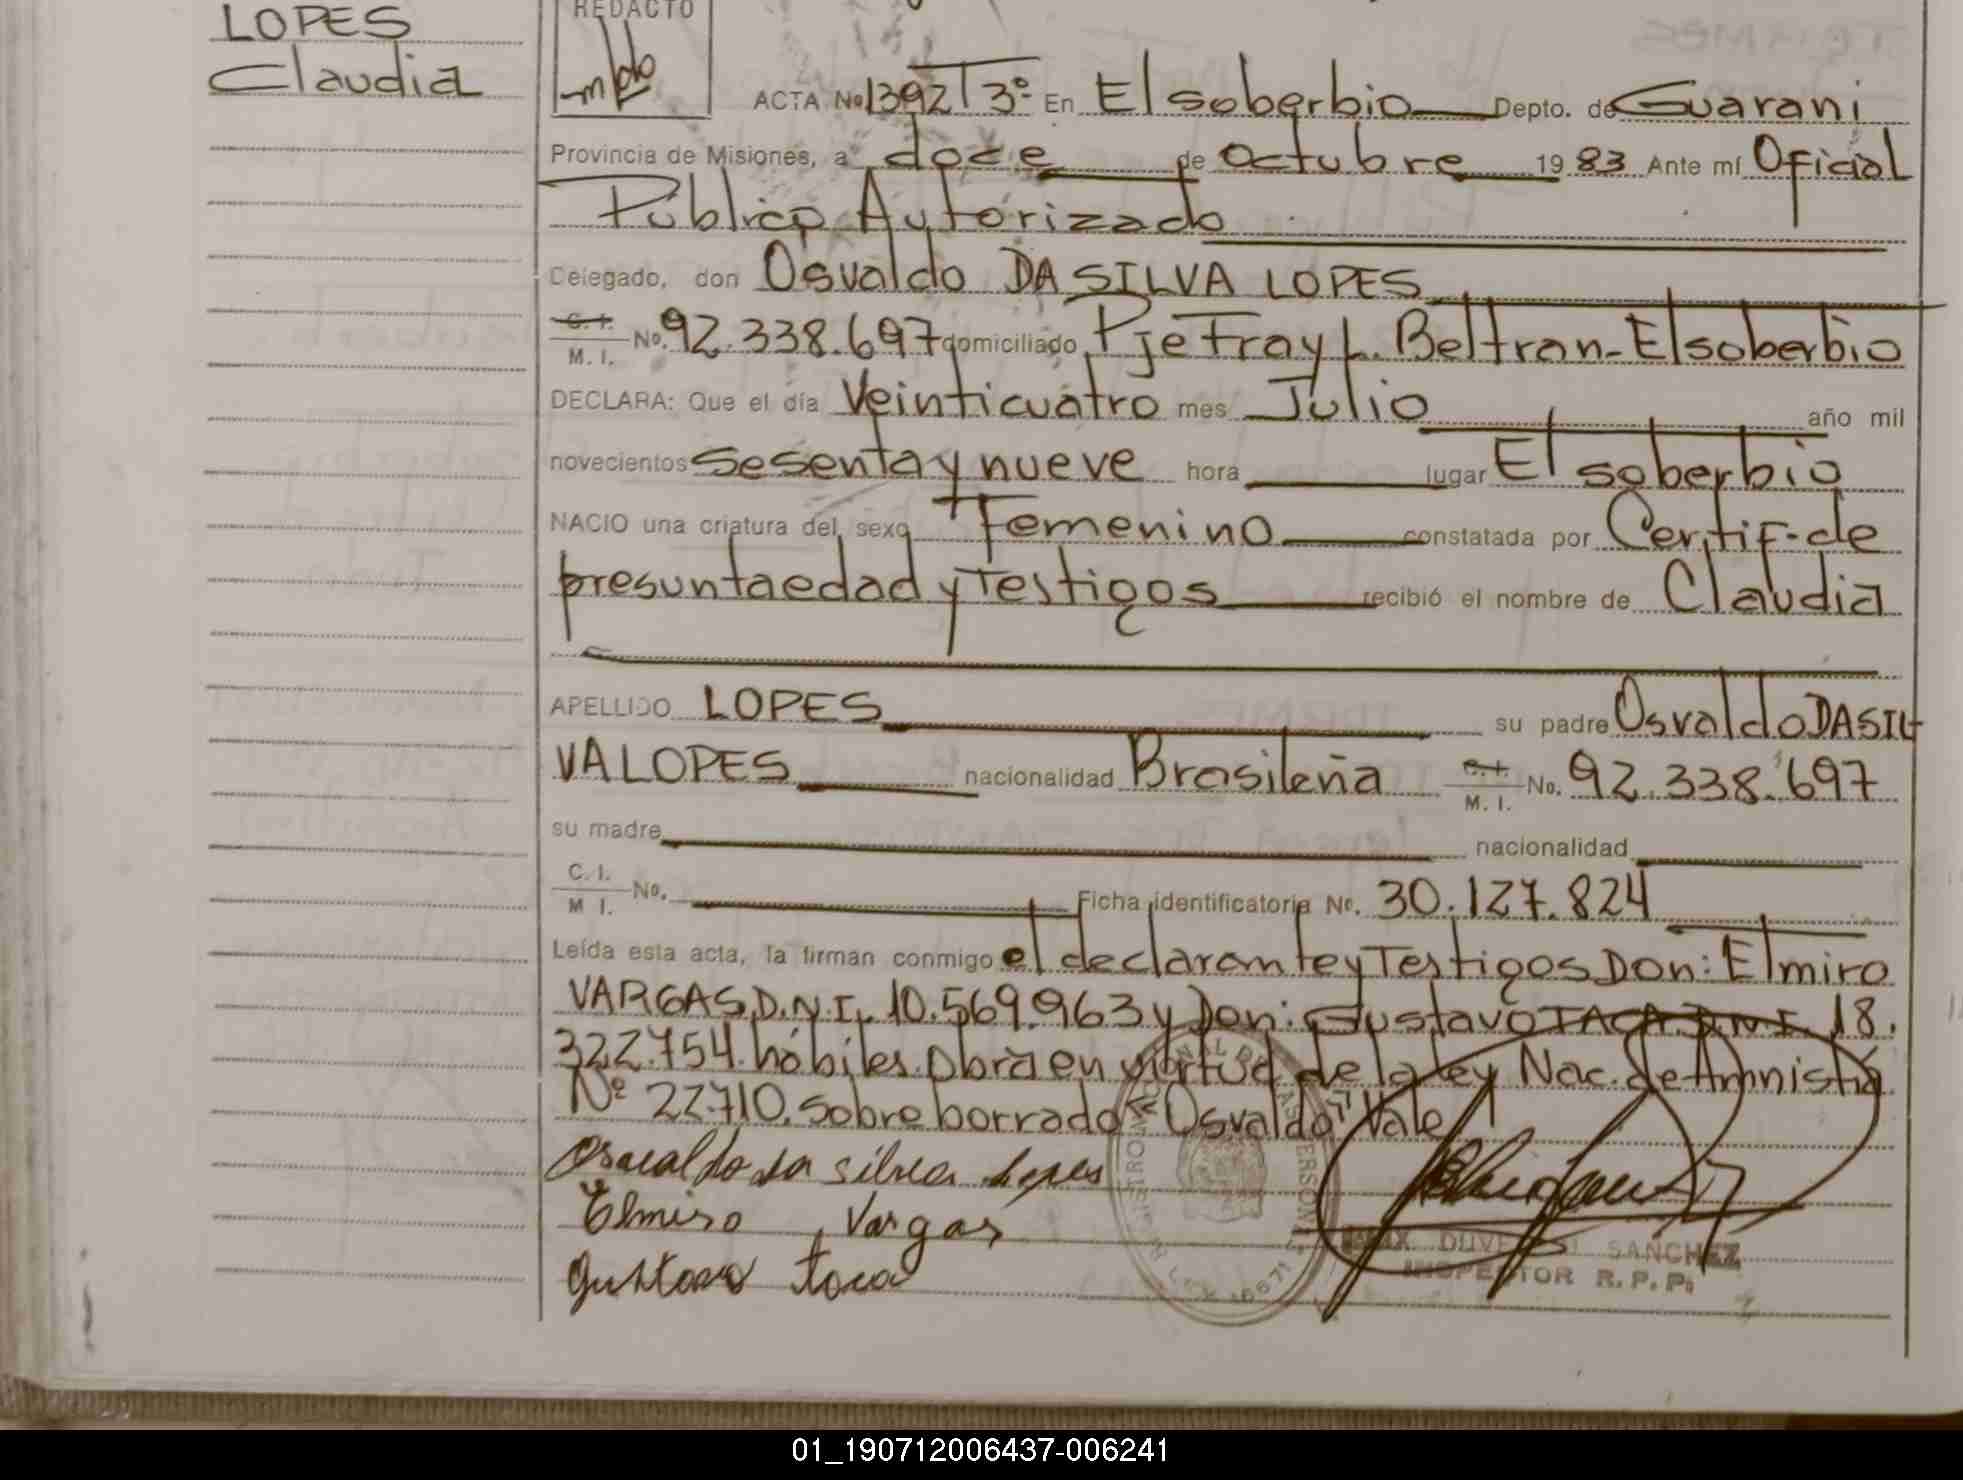 LOPES
Claudia
REDACTO
ACTA No 1392 T 3º En El soberbio Depto. de Guarani
Provincia de Misiones, a doce de octubre 19 83 Ante mí Oficial
Público Autorizado
Delegado, don Osvaldo DA SILVA LOPES
C. I. M. I. No. 92.338.697 domiciliado Pje Fray L. Beltran - El soberbio
DECLARA: Que el día Veinticuatro mes Julio año mil
novecientos sesenta y nueve hora lugar El soberbio
NACIO una criatura del sexo Femenino constatada por Certif. de
presunta edad y Testigos recibió el nombre de Claudia
APELLIDO LOPES su padre Osvaldo DA SIL
VA LOPES nacionalidad Brasileña C. I. M. I. No. 92.338.697
su madre nacionalidad
C. I. M I. No. Ficha identificatoria No. 30.127.824
Leída esta acta, la firman conmigo el declarante y Testigos Don: Elmiro
VARGAS D.N.I. 10.569.963 y Don: Gustavo TACA D.N.I. 18.
322.754. hábiles. obra en virtud de la ley Nac. de Amnistia
Nº 22.710. Sobre borrado "Osvaldo" Vale
Osvaldo da silva Lopes
Elmiro Vargas
SANCHEZ
INSPECTOR R. P. P.
01_190712006437-006241